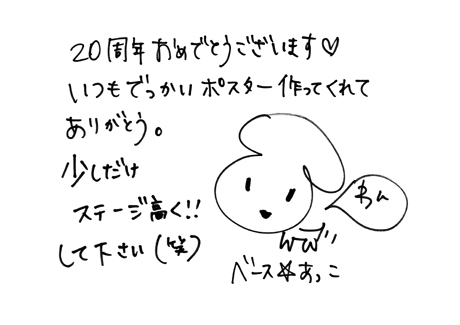 20周年おめでとうございます♡
いつもでっかいポスター作ってくれて
ありがとう。
少しだけ
ステージ高く!!
して下さい(笑)
わん
ベース☆あっこ